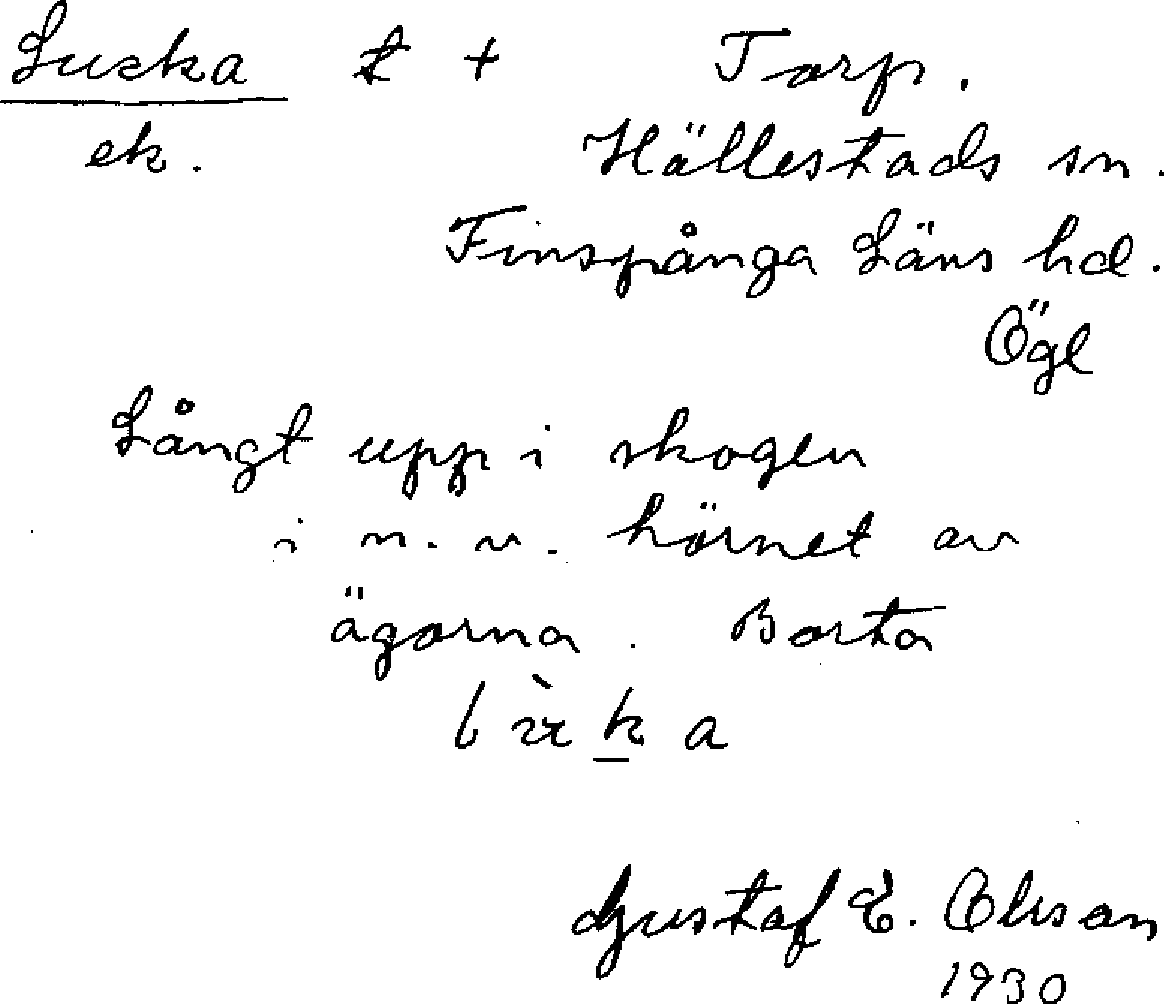 Lucka t + Torp.
ek. Hällestads sn.
Finspånga Läns hd.
Ögl
Långt upp i skogen
i n. v. hörnet av
ägorna. Borta

Gustaf E. Olsson
1930